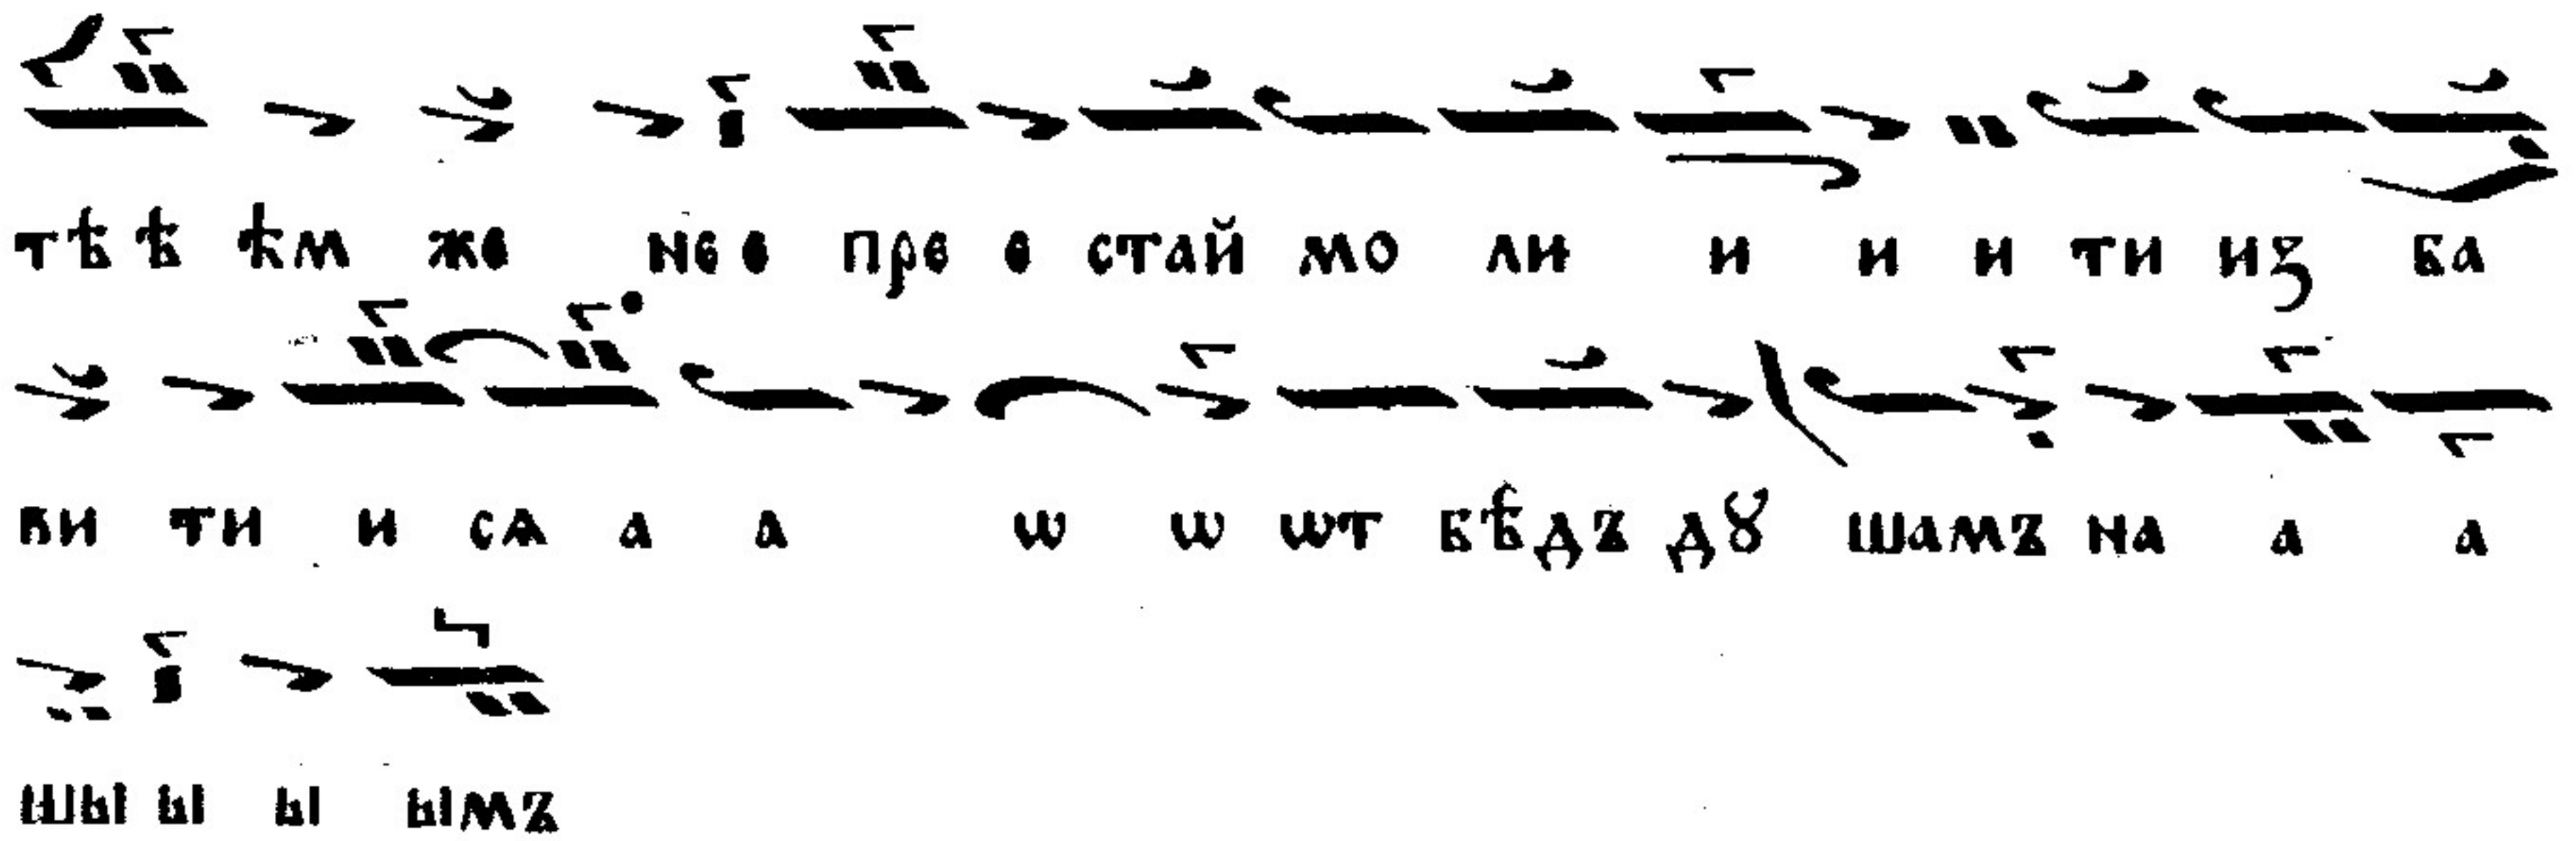 тѣ ѣ ѣм же не е пре е стай мо ли и и и ти из ба
ви ти и сѧ а а ѡ ѡ ѡт бѣдъ дꙋ шамъ на а а
шы ы ы ымъ